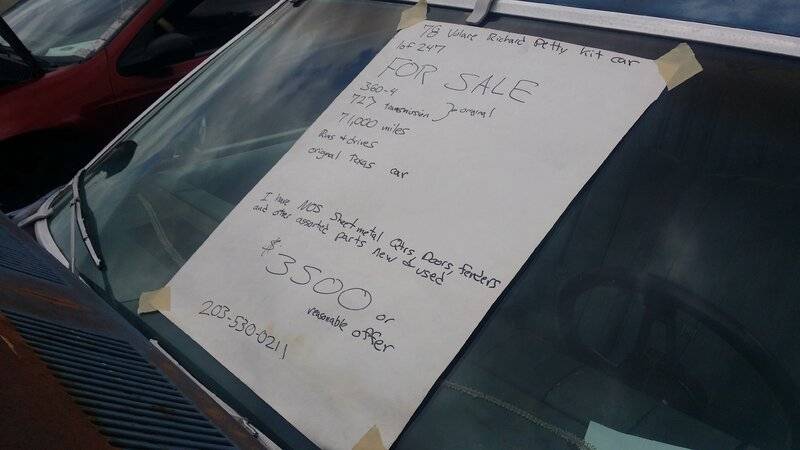 78 Volare Richard Petty kit car
1 of 247
FOR SALE
360-4
727 transmission } original
71,000 miles
Runs & drives
original Texas car
I have NOS Sheetmetal Qtrs, Doors, Fenders
and other assorted parts new & used
$3500 or
reasonable offer
203-530-0211